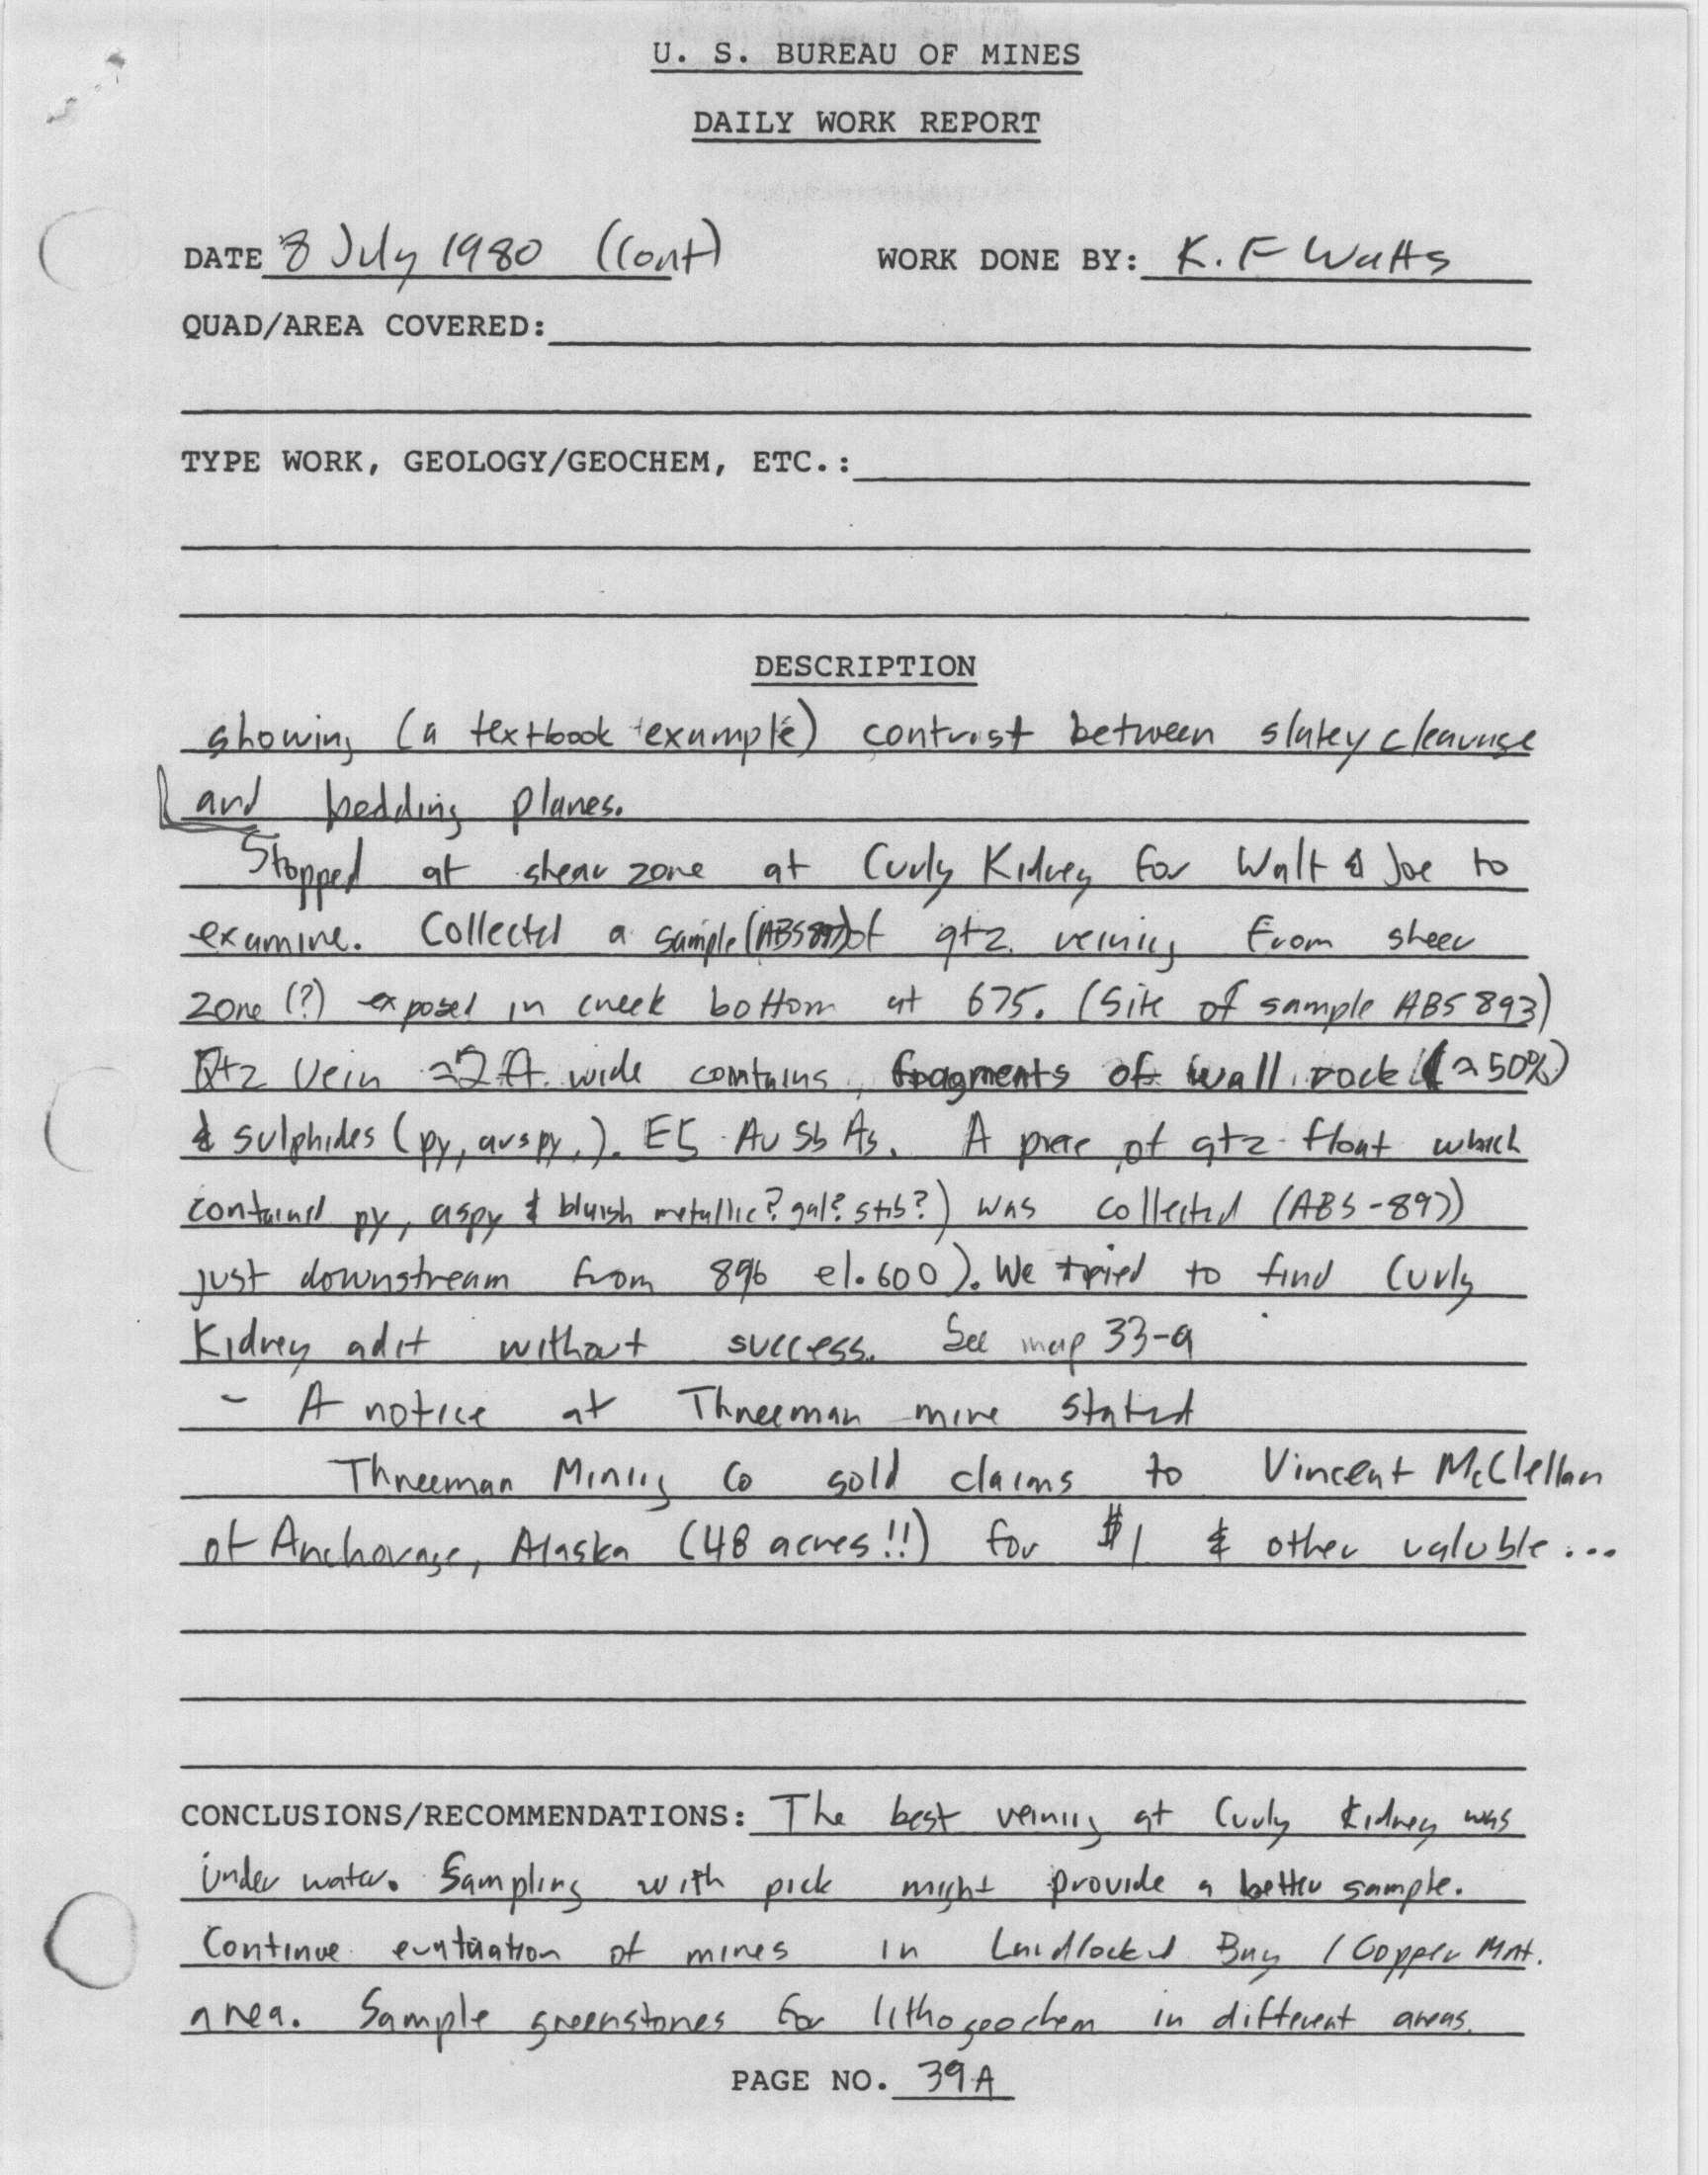 U. S. BUREAU OF MINES
DAILY WORK REPORT
DATE 8 July 1980 (Cont) WORK DONE BY: K. F Watts
QUAD/AREA COVERED:
TYPE WORK, GEOLOGY/GEOCHEM, ETC.:
DESCRIPTION
showing (a textbook example) contrast between slatey cleavage
and bedding planes.
Stopped at shear zone at Curly Kidney for Walt & Joe to
examine. Collected a sample ( of qtz veining from sheer
zone (?) exposed in creek bottom at 675. (Site of sample ABS 893)
Qtz vein ≈2 ft. wide contains, fragments of wall rock (≈50%)
& sulphides (py, arspy,). ES Au Sb As. A piece of qtz float which
contained py, aspy & bluish metallic? gal? stib?) was collected (ABS-897)
just downstream from 896 el. 600). We tried to find Curly
Kidney adit without success. See map 33-a
- A notice at Threeman mine stated
Threeman Mining Co sold claims to Vincent McClellan
of Anchorage, Alaska (48 acres!!) for $1 & other valuble...
CONCLUSIONS/RECOMMENDATIONS: The best veining at Curly Kidney was
under water. Sampling with pick might provide a better sample.
Continue evaluation of mines in Landlocked Bay / Copper Mnt.
area. Sample greenstones for lithogeochem in different areas.
PAGE NO. 39A